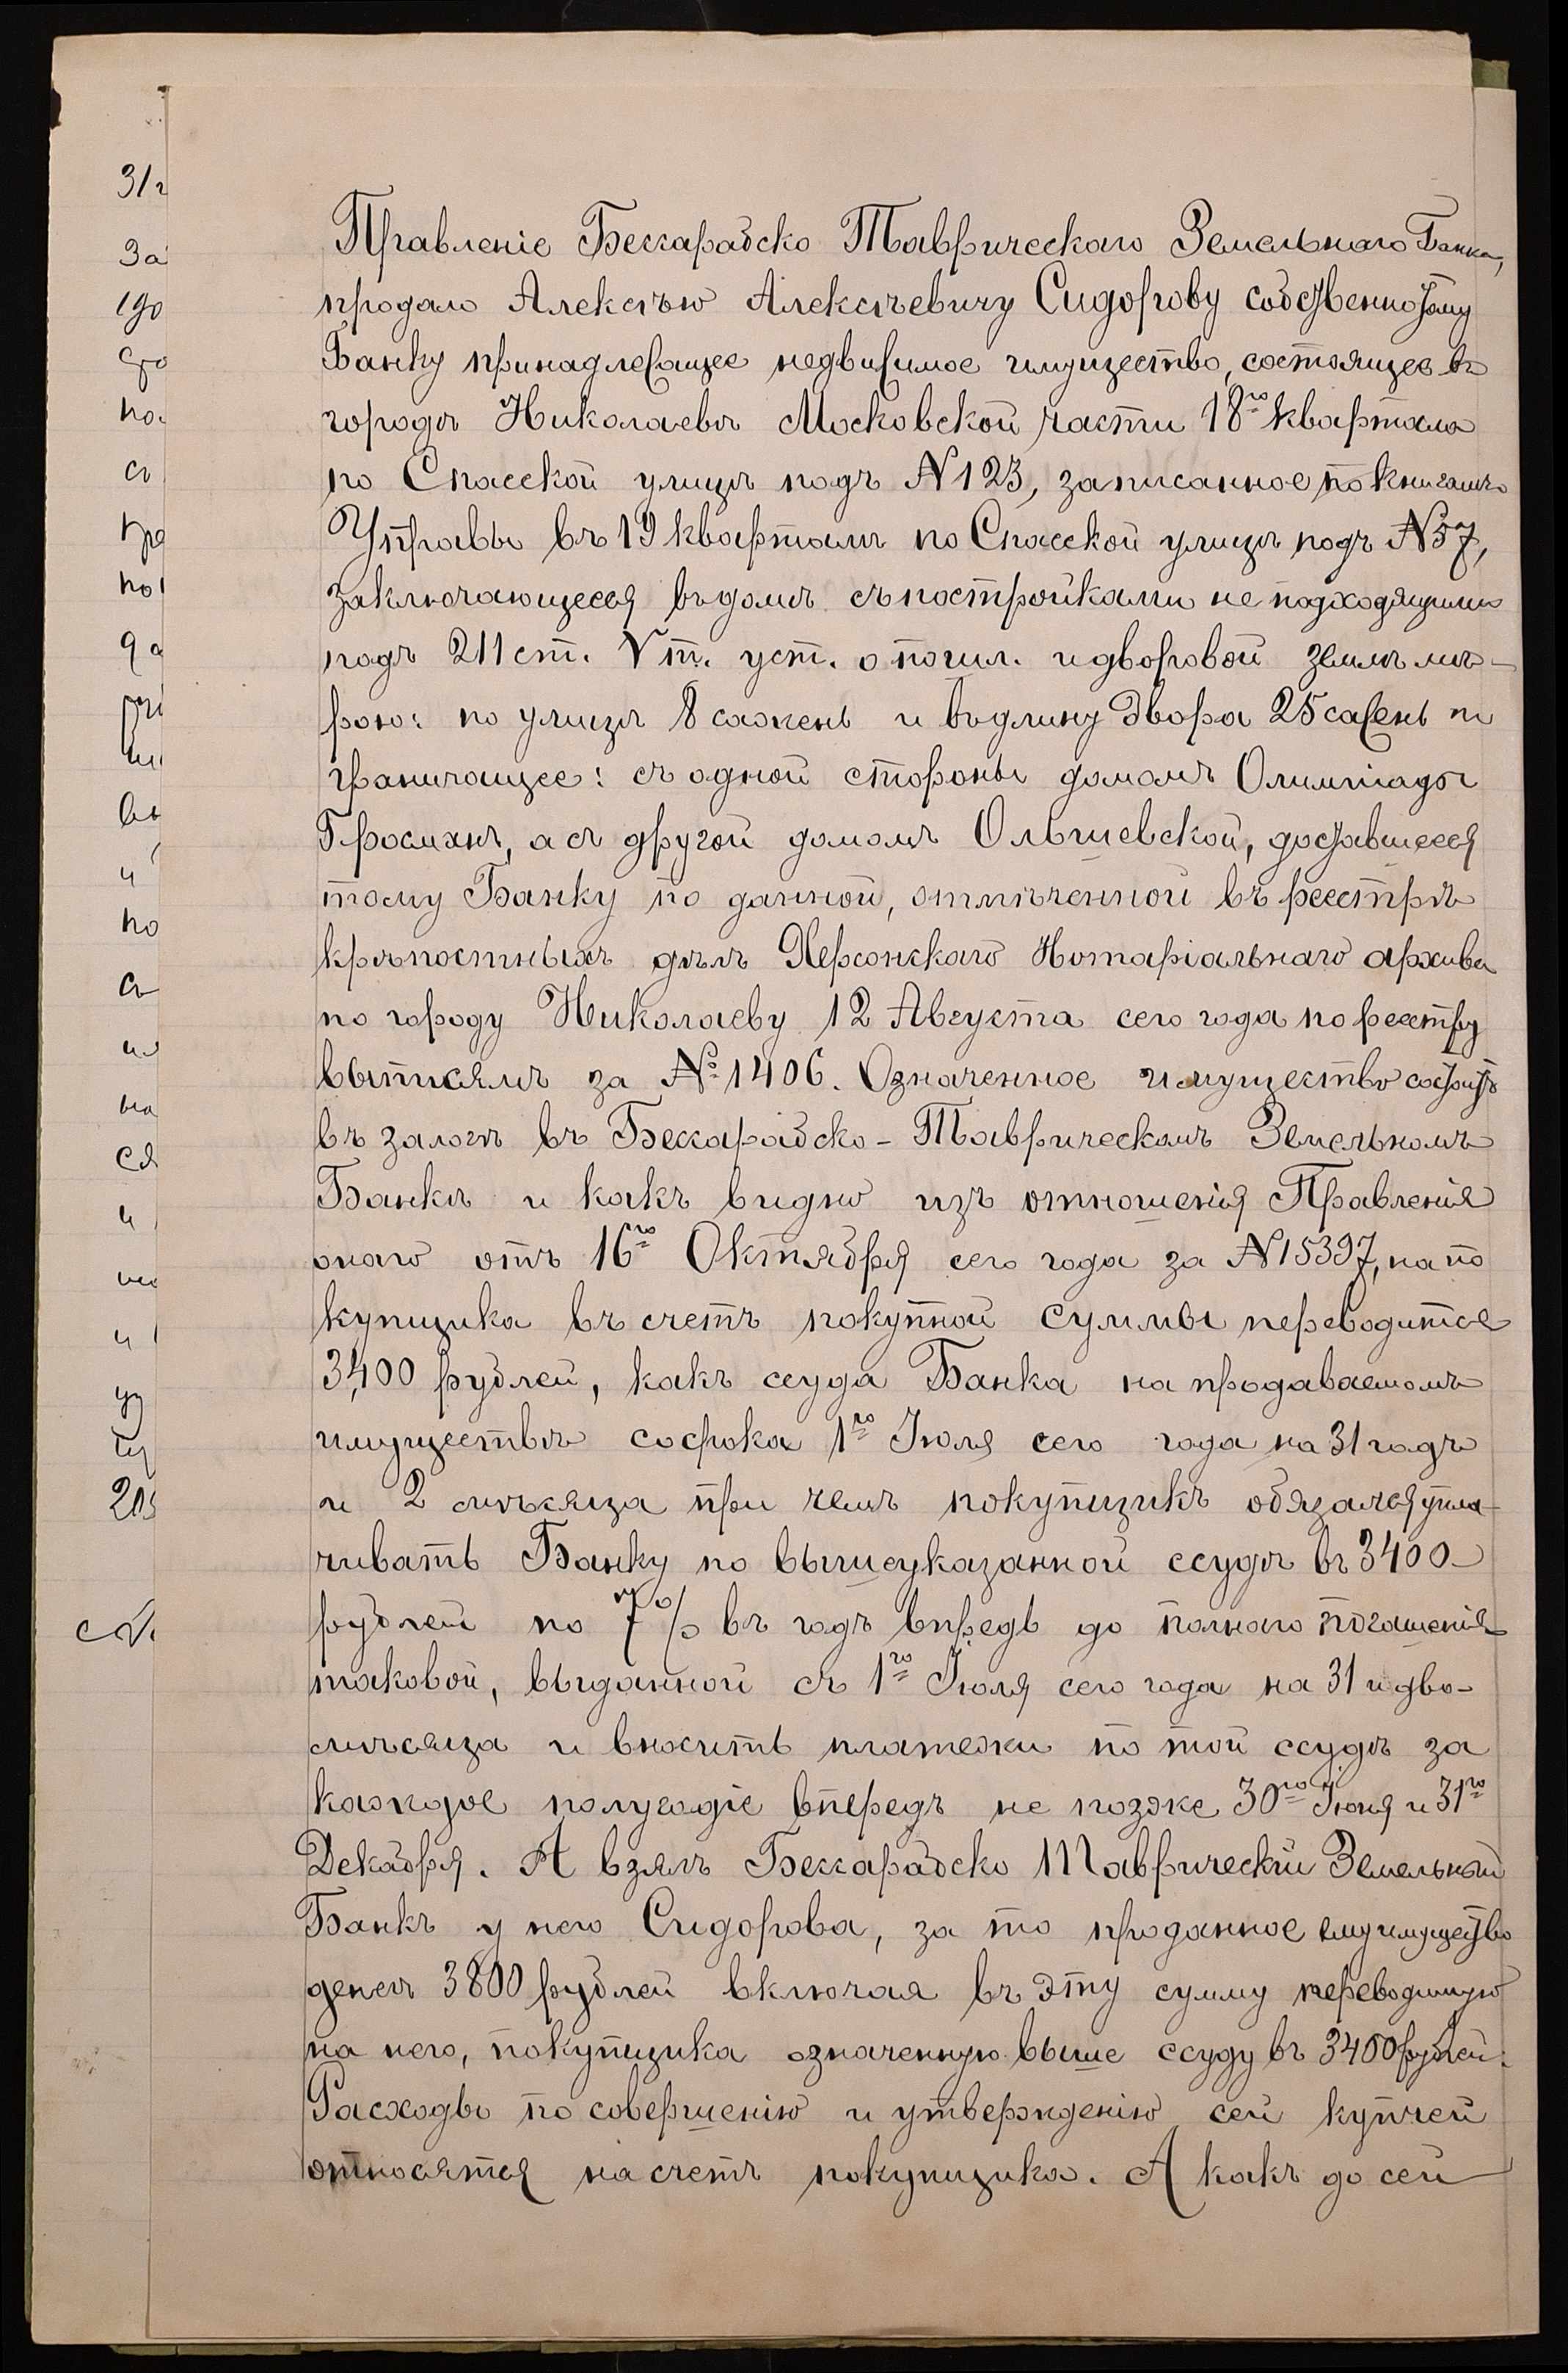 Правленіе Бессарабско Таврическаго Земельнаго Банка,
продало Алексѣю Алексѣевичу Сидорову собственно тому
Банку принадлежащее недвижимое имущество, состоящее въ
городѣ Николаевѣ Московской части 18го квартала
по Спасской улицѣ подъ N 123, записанное по книгамъ
Управы въ 19 кварталѣ по Спасской улицѣ подъ N 57,
заключающееся въ домѣ съ постройками не подходящими
подъ 211 ст. V т. уст. о пошл. и дворовой землѣ мѣ-
рою: по улицѣ 8 сажень и въ длину двора 25 сажень и
граничащее: съ одной стороны домомъ Олимпіады
а съ другой домомъ Ольшевской, доставшееся
тому Банку по данной, отмѣченной въ реестрѣ
крѣпостныхъ дѣлъ Херсонскаго Нотаріальнаго архива
по городу Николаеву 12 Августа сего года по реестру
за № 1406. Означенное имущество состоитъ
въ залогѣ въ Бессарабско-Таврическомъ Земельномъ
Банкѣ и какъ видно изъ отношенія Правленія
онаго отъ 16го Октября сего года за N 15397, на по
купщика въ счетъ покупной суммы переводится
3,400 рублей, какъ ссуда Банка на продаваемомъ
имуществѣ со срока 1го Іюля сего года на 31 годъ
и 2 мѣсяца при чемъ покупщикъ обязался упла-
чивать Банку по вышеуказанной ссудѣ въ 3400
рублей по 7% въ годъ впредь до полнаго погашенія
таковой, выданной съ 1го Іюля сего года на 31 и два
мѣсяца и вносить платежи по той ссудѣ за
каждое полугодіе впередъ не позже 30го Іюня и 31го
Декабря. А взялъ Бессарабско Таврическій Земельный
Банкъ у него Сидорова, за то проданное ему имущество
денегъ 3800 рублей включая въ эту сумму переводимую
на него, покупщика означенную выше ссуду въ 3400 рублей.
Расходы по совершенію и утвержденію сей купчей
относятся на счетъ покупщика. А какъ до сей